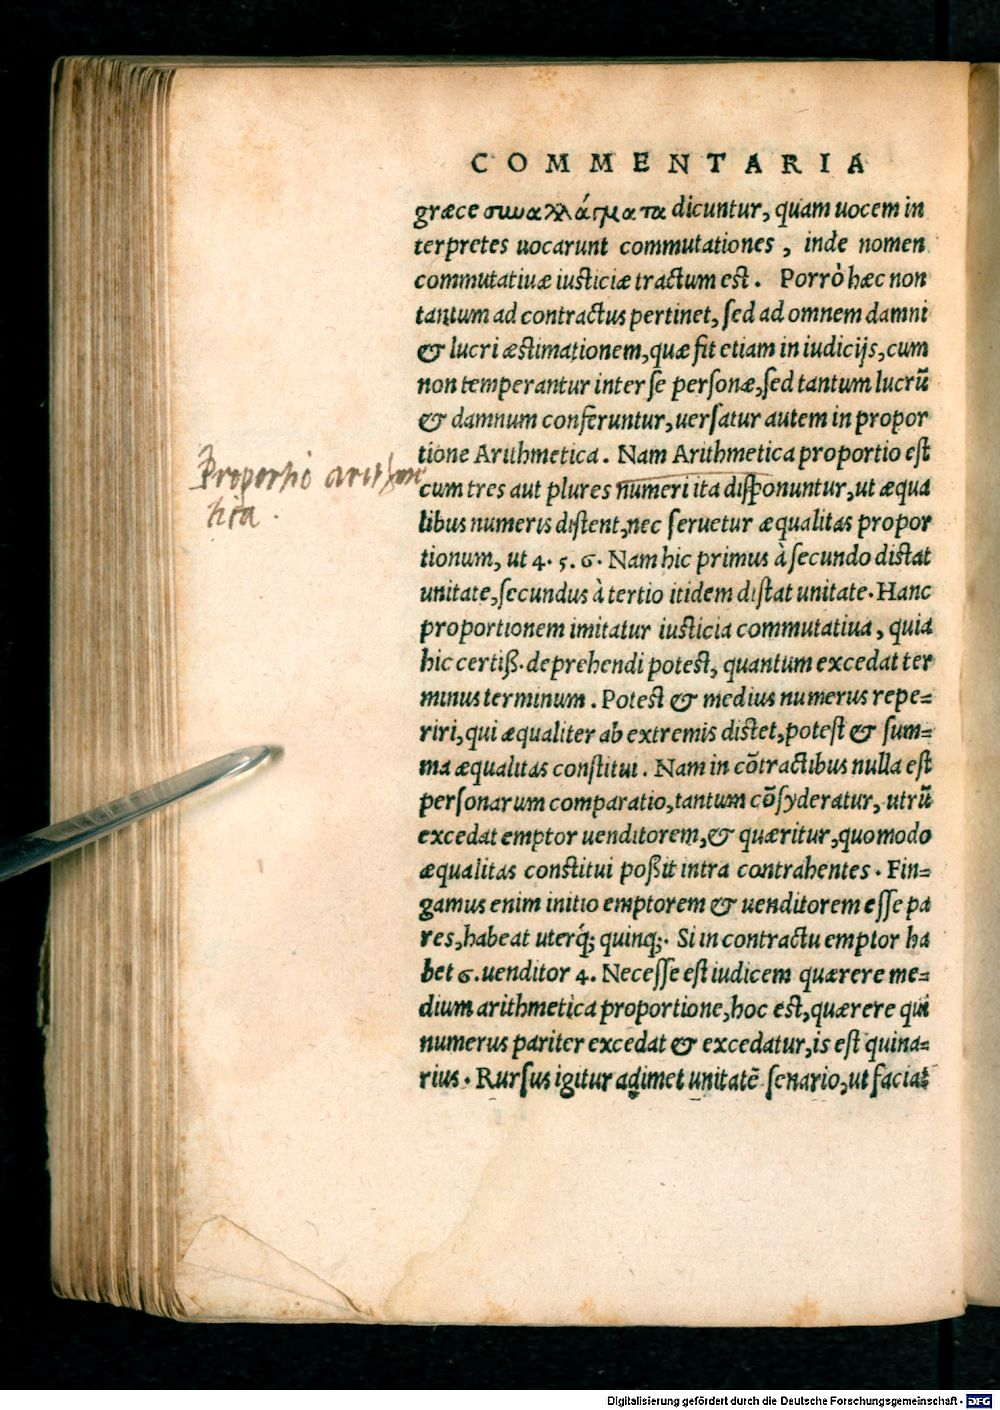 COMMENTARIA
græce συναλλάγματα dicuntur, quam uocem in
terpretes uocarunt commutationes, inde nomen
commutatiuæ iusticiæ tractum est. Porrò hæc non
tantum ad contractus pertinet, sed ad omnem damni
& lucri æstimationem, quæ fit etiam in iudicijs, cum
non temperantur inter se personæ, sed tantum lucrũ
& damnum conferuntur, uersatur autem in propor
tione Arithmetica. Nam Arithmetica proportio est
Proportio arithme
tica.
cum tres aut plures numeri ita disponuntur, ut æqua
libus numeris distent, nec seruetur æqualitas propor
tionum, ut 4. 5. 6. Nam hic primus à secundo distat
unitate, secundus à tertio itidem distat unitate. Hanc
proportionem imitatur iusticia commutatiua, quia
hic certiß. deprehendi potest, quantum excedat ter
minus terminum. Potest & medius numerus repe=
riri, qui æqualiter ab extremis distet, potest & sum=
ma æqualitas constitui. Nam in cõtractibus nulla est
personarum comparatio, tantum cõsyderatur, utrũ
excedat emptor uenditorem, & quæritur, quomodo
æqualitas constitui poßit intra contrahentes. Fin=
gamus enim initio emptorem & uenditorem esse pa
res, habeat uterq́; quinq;. Si in contractu emptor ha
bet 6. uenditor 4. Necesse est iudicem quærere me=
dium arithmetica proportione, hoc est, quærere qui
numerus pariter excedat & excedatur, is est quina=
rius. Rursus igitur adimet unitatẽ senario, ut faciat
Digitalisierung gefördert durch die Deutsche Forschungsgemeinschaft - DFG